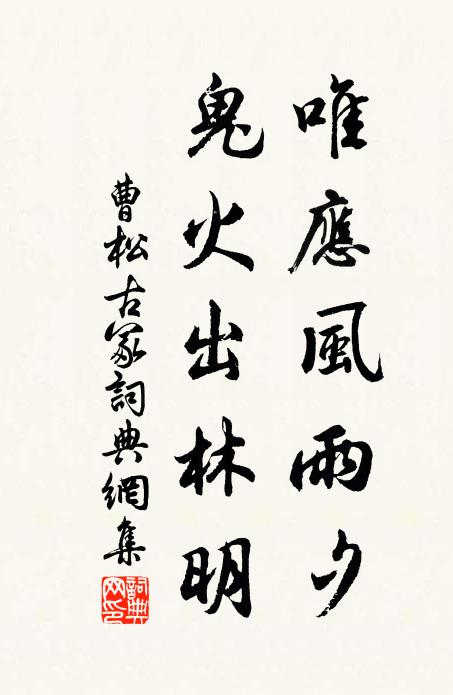 唯應風雨夕
鬼火出林明
曹松古冢詞典網集
詞典网印